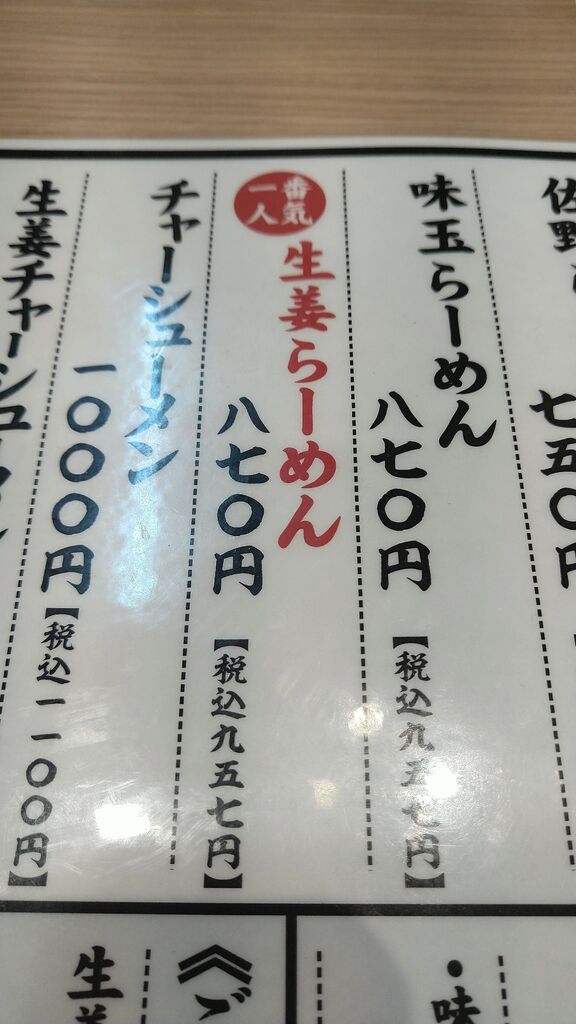 佐野ら
七五〇円
味玉らーめん
八七〇円
【税込九五七円】
一番人気
生姜らーめん
八七〇円
【税込九五七円】
チャーシューメン
一〇〇〇円
【税込一一〇〇円】
生姜チャーシューメン
・味
《ご
生姜